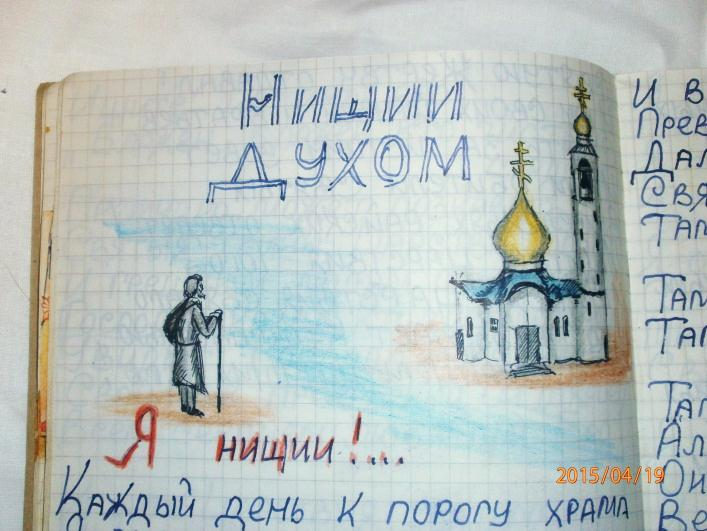 НИЩИИ
ДУХОМ
Я нищии!...
Каждый день к порогу храма
И в
Прев
Дал
Свя
Там
Там
Там
Ал
Он
Ве
2015/04/19